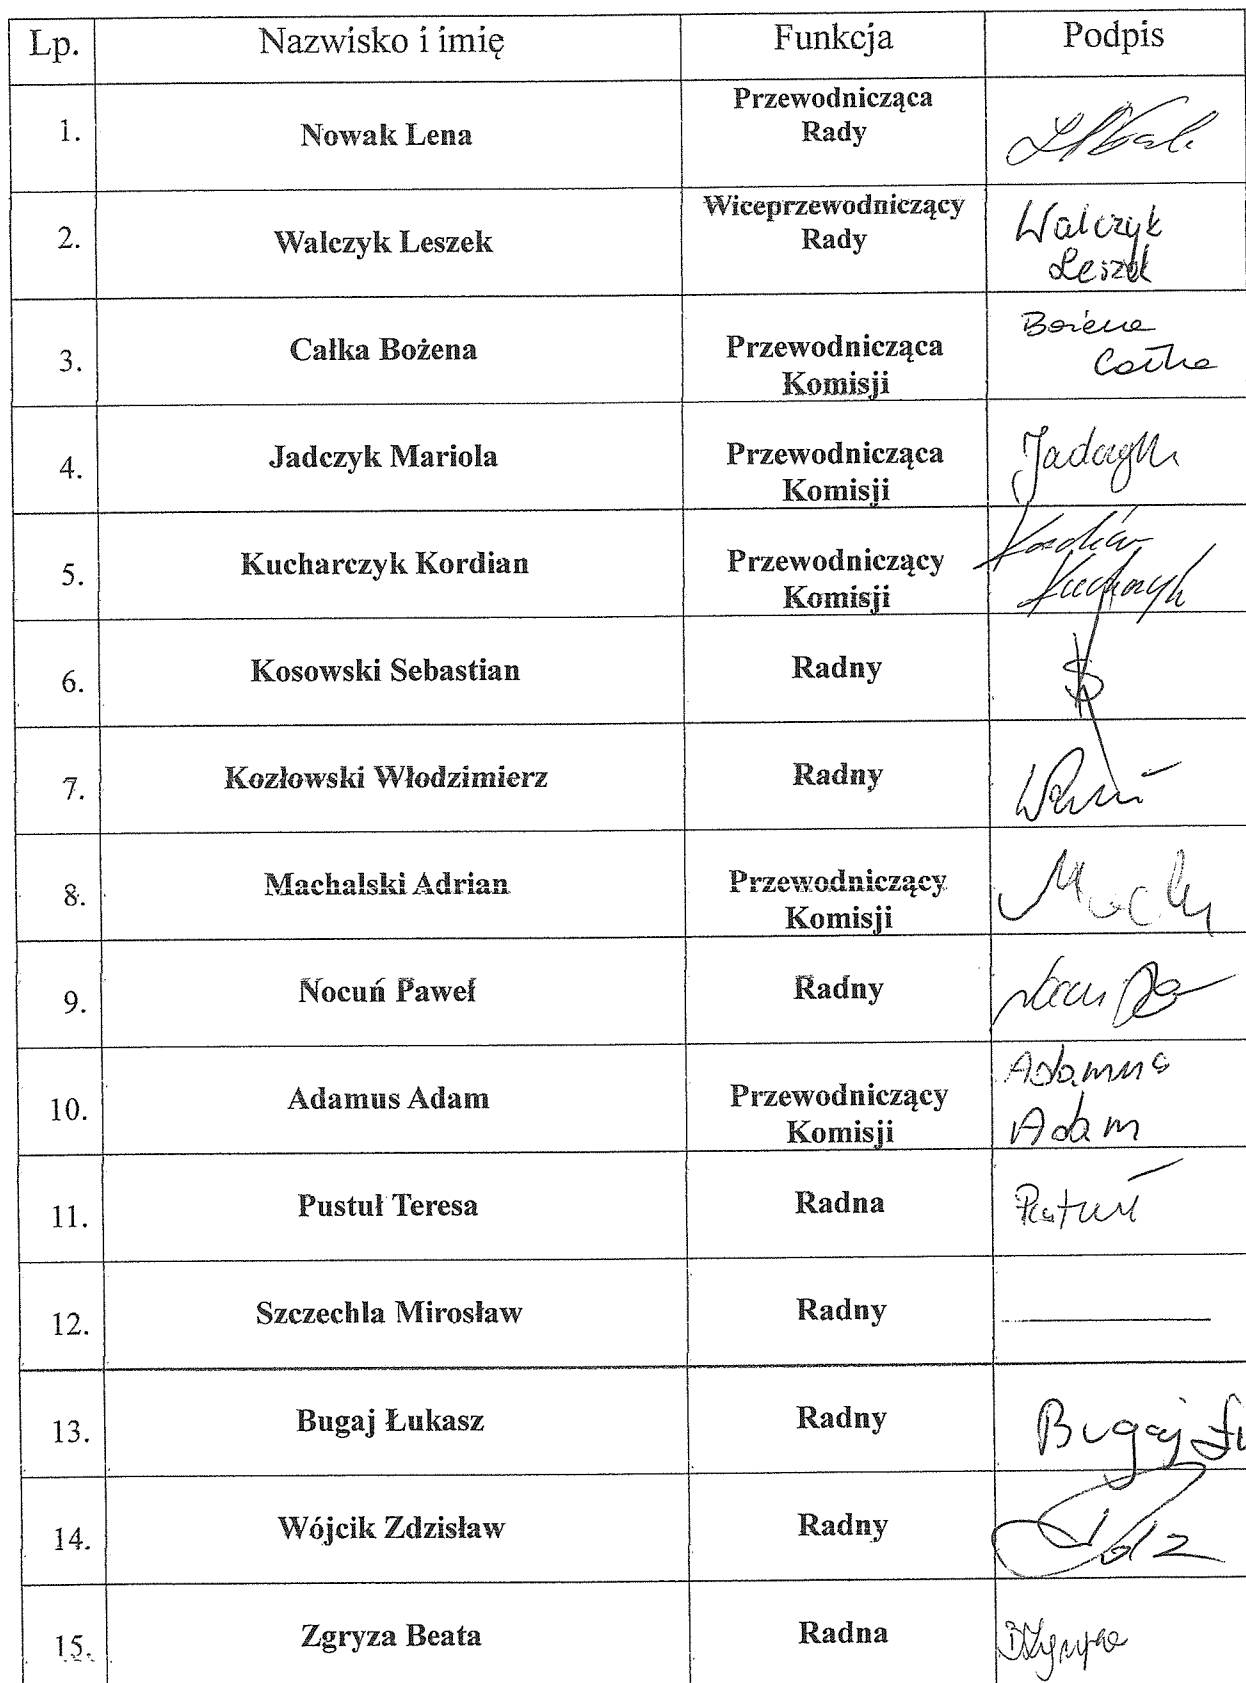 Lp. Nazwisko i imię Funkcja Podpis
1. Nowak Lena Przewodnicząca
Rady
2. Walczyk Leszek Wiceprzewodniczący Walczyk
Rady Leszek
3. Całka Bożena Przewodnicząca Bożena
Komisji Całka
4. Jadczyk Mariola Przewodnicząca Jadczyk
Komisji
5. Kucharczyk Kordian Przewodniczący Kordian
Komisji Kucharczyk
6. Kosowski Sebastian Radny
7. Kozłowski Włodzimierz Radny
8. Machalski Adrian Przewodniczący
Komisji
9. Nocuń Paweł Radny
10. Adamus Adam Przewodniczący Adamus
Komisji Adam
11. Pustuł Teresa Radna Pustuł
12. Szczechla Mirosław Radny
13. Bugaj Łukasz Radny Bugaj Łu
14. Wójcik Zdzisław Radny
15. Zgryza Beata Radna BZgryza